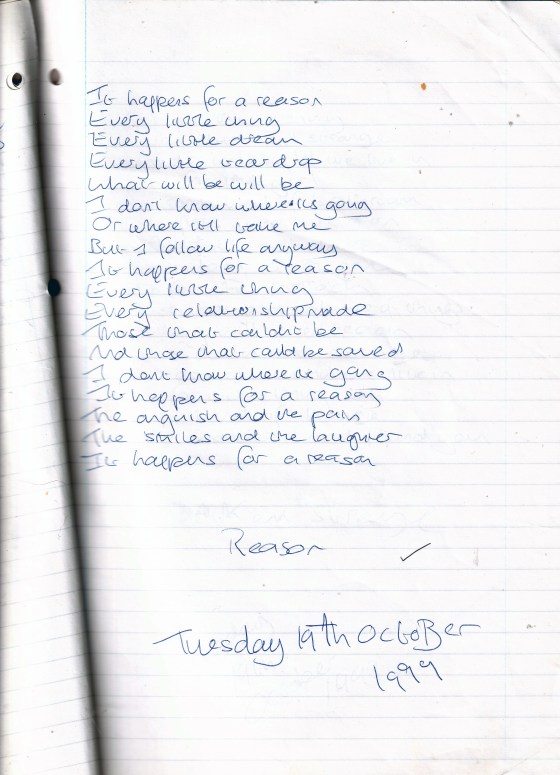 It happens for a reason
Every little thing
Every little dream
Every little tear drop
What will be will be
I dont know where its going
Or where itll take me
But I follow life anyway
It happens for a reason
Every little thing
Every relationship made
Those that couldnt be
And those that could be saved
I dont know where its going
It happens for a reason
The anguish and the pain
The smiles and the laughter
It happens for a reason
Reason
Tuesday 19th October
1999